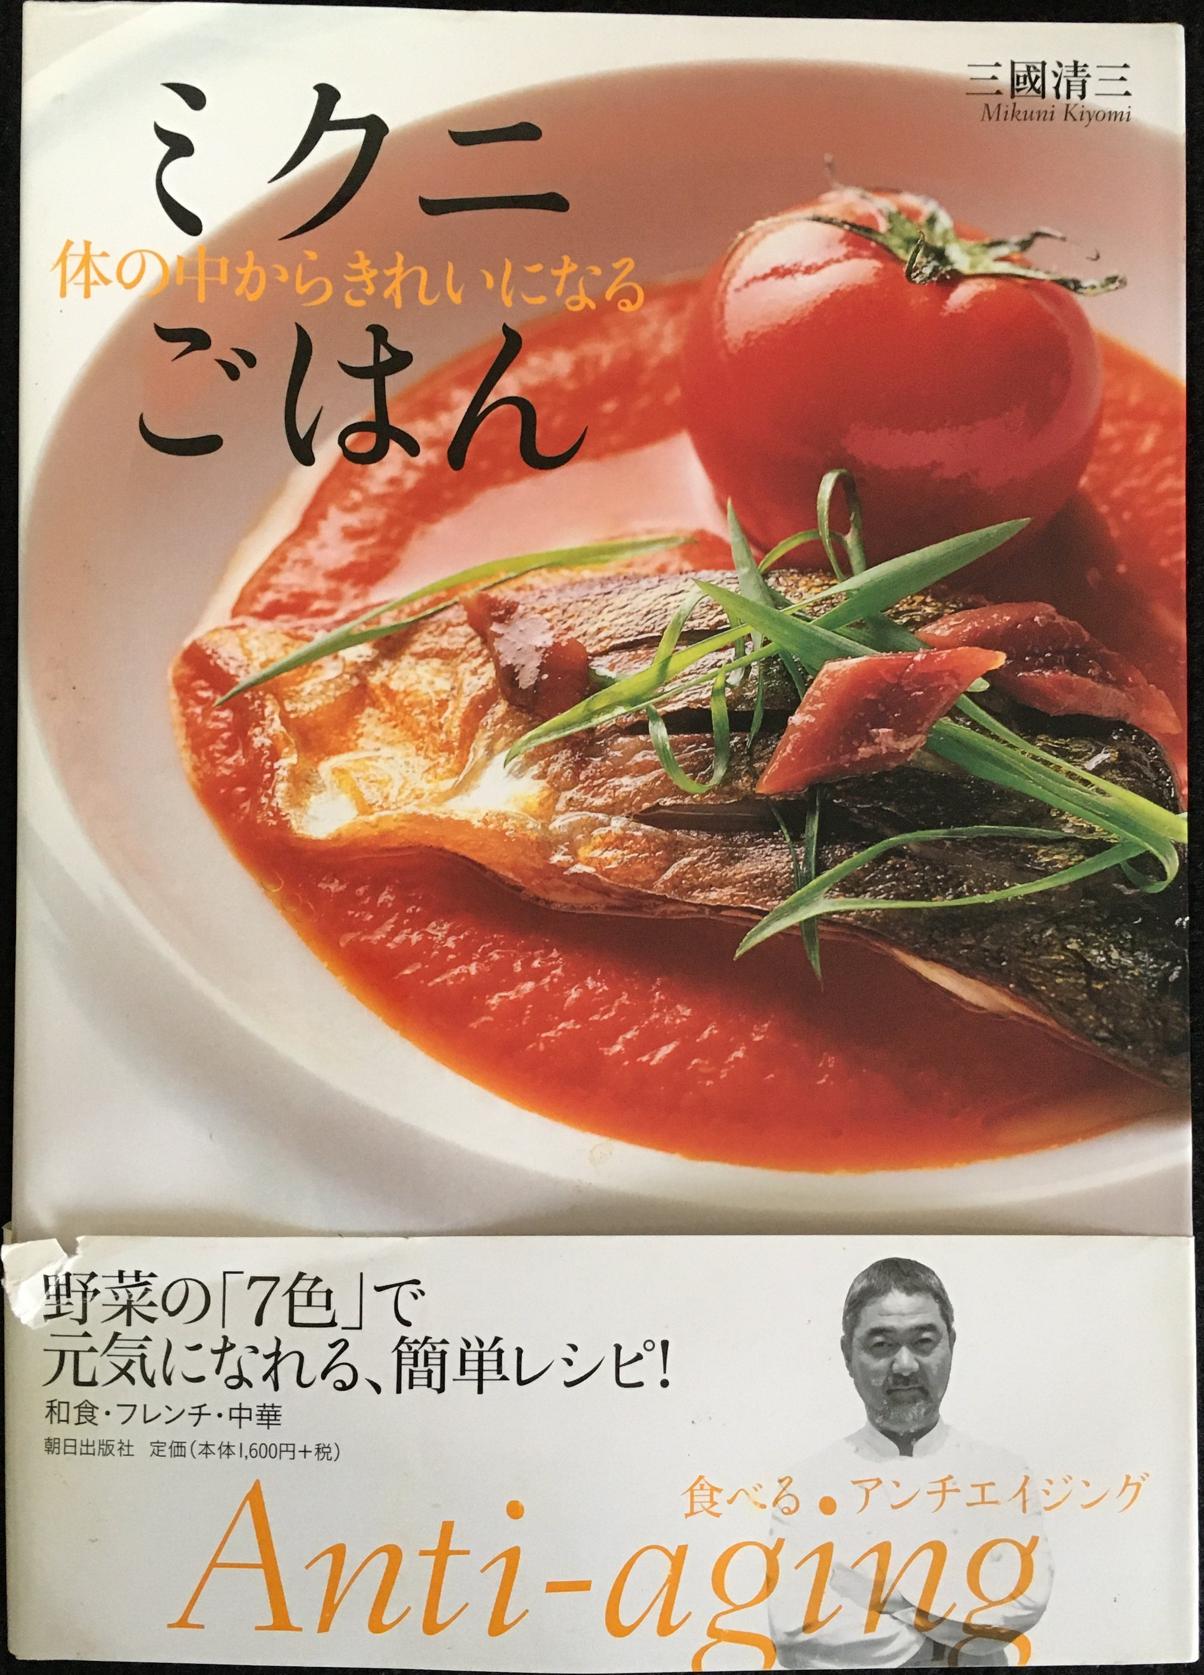 三國清三
Mikuni Kiyomi
ミクニ
体の中からきれいになる
ごはん
野菜の「7色」で
元気になれる、簡単レシピ!
和食・フレンチ・中華
朝日出版社 定価(本体1,600円+税)
食べる・アンチエイジング
Anti-aging